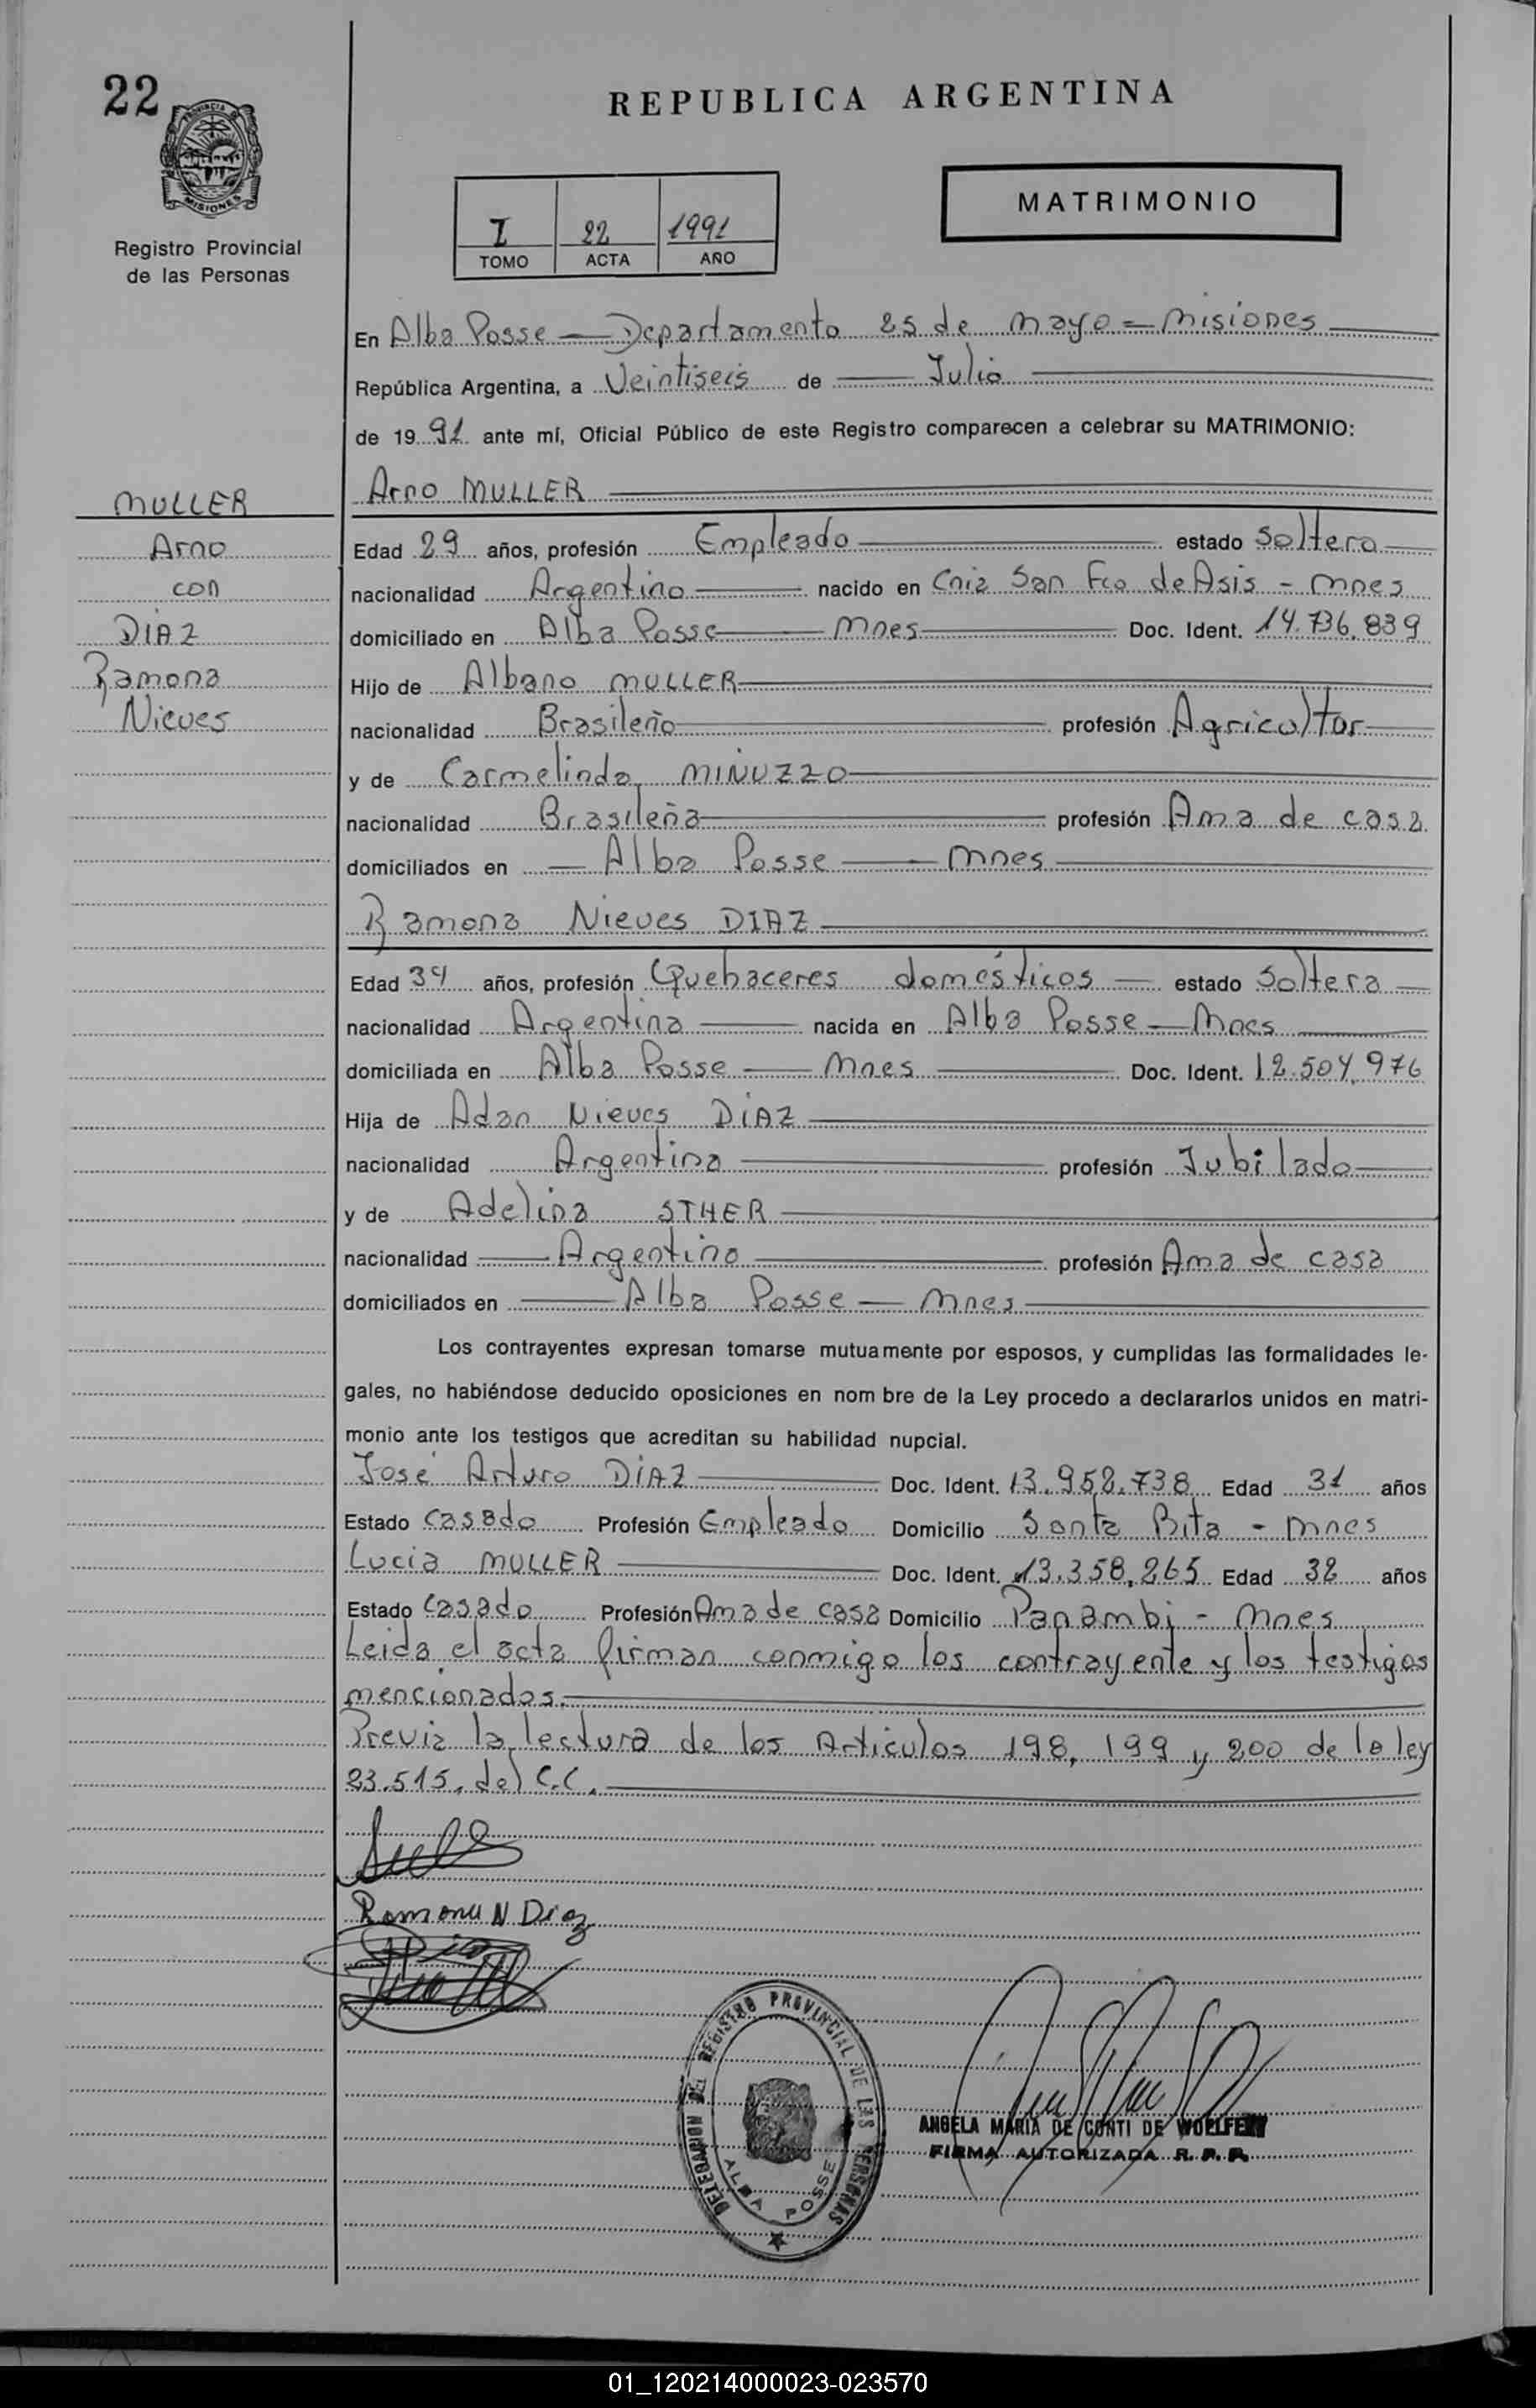 22
PROVINCIA
MISIONES
Registro Provincial
de las Personas
REPUBLICA ARGENTINA
MATRIMONIO
I 22 1991
TOMO ACTA AÑO
En Alba Posse — Departamento 25 de Mayo = Misiones
República Argentina, a Veintiseis de Julio
de 19 91 ante mí, Oficial Público de este Registro comparecen a celebrar su MATRIMONIO:
MULLER
Arno
con
DIAZ
Ramona
Nieves
Arno MULLER
Edad 29 años, profesión Empleado estado Soltero
nacionalidad Argentino nacido en Cnia San Fco de Asis - Mnes
domiciliado en Alba Posse — Mnes Doc. Ident. 14.736.839
Hijo de Albano MULLER
nacionalidad Brasileño profesión Agricultor
y de Carmelinda MINUZZO
nacionalidad Brasileña profesión Ama de casa
domiciliados en — Alba Posse — Mnes
Ramona Nieves DIAZ
Edad 34 años, profesión Quehaceres domésticos — estado Soltera
nacionalidad Argentina nacida en Alba Posse — Mnes
domiciliada en Alba Posse — Mnes Doc. Ident. 12.504.976
Hija de Adan Nieves DIAZ
nacionalidad Argentina profesión Jubilado
y de Adelina STHER
nacionalidad — Argentino profesión Ama de casa
domiciliados en — Alba Posse — Mnes
Los contrayentes expresan tomarse mutuamente por esposos, y cumplidas las formalidades le-
gales, no habiéndose deducido oposiciones en nom bre de la Ley procedo a declararlos unidos en matri-
monio ante los testigos que acreditan su habilidad nupcial.
José Arturo DIAZ Doc. Ident. 13.952.738 Edad 31 años
Estado Casado Profesión Empleado Domicilio Santa Rita - Mnes
Lucia MULLER Doc. Ident. 13.358.265 Edad 32 años
Estado Casado Profesión Ama de casa Domicilio Panambi - Mnes
Leida el acta firman conmigo los contrayente y los testigos
mencionados.
Previa la lectura de los Articulos 198, 199 y 200 de la ley
23.515. del C.C.
Ramona N Diaz
DELEGACION DEL REGISTRO PROVINCIAL DE LAS PERSONAS
ALBA POSSE
ANGELA MARIA DE CONTI DE
FIRMA AUTORIZADA R. P. P.
01_120214000023-023570